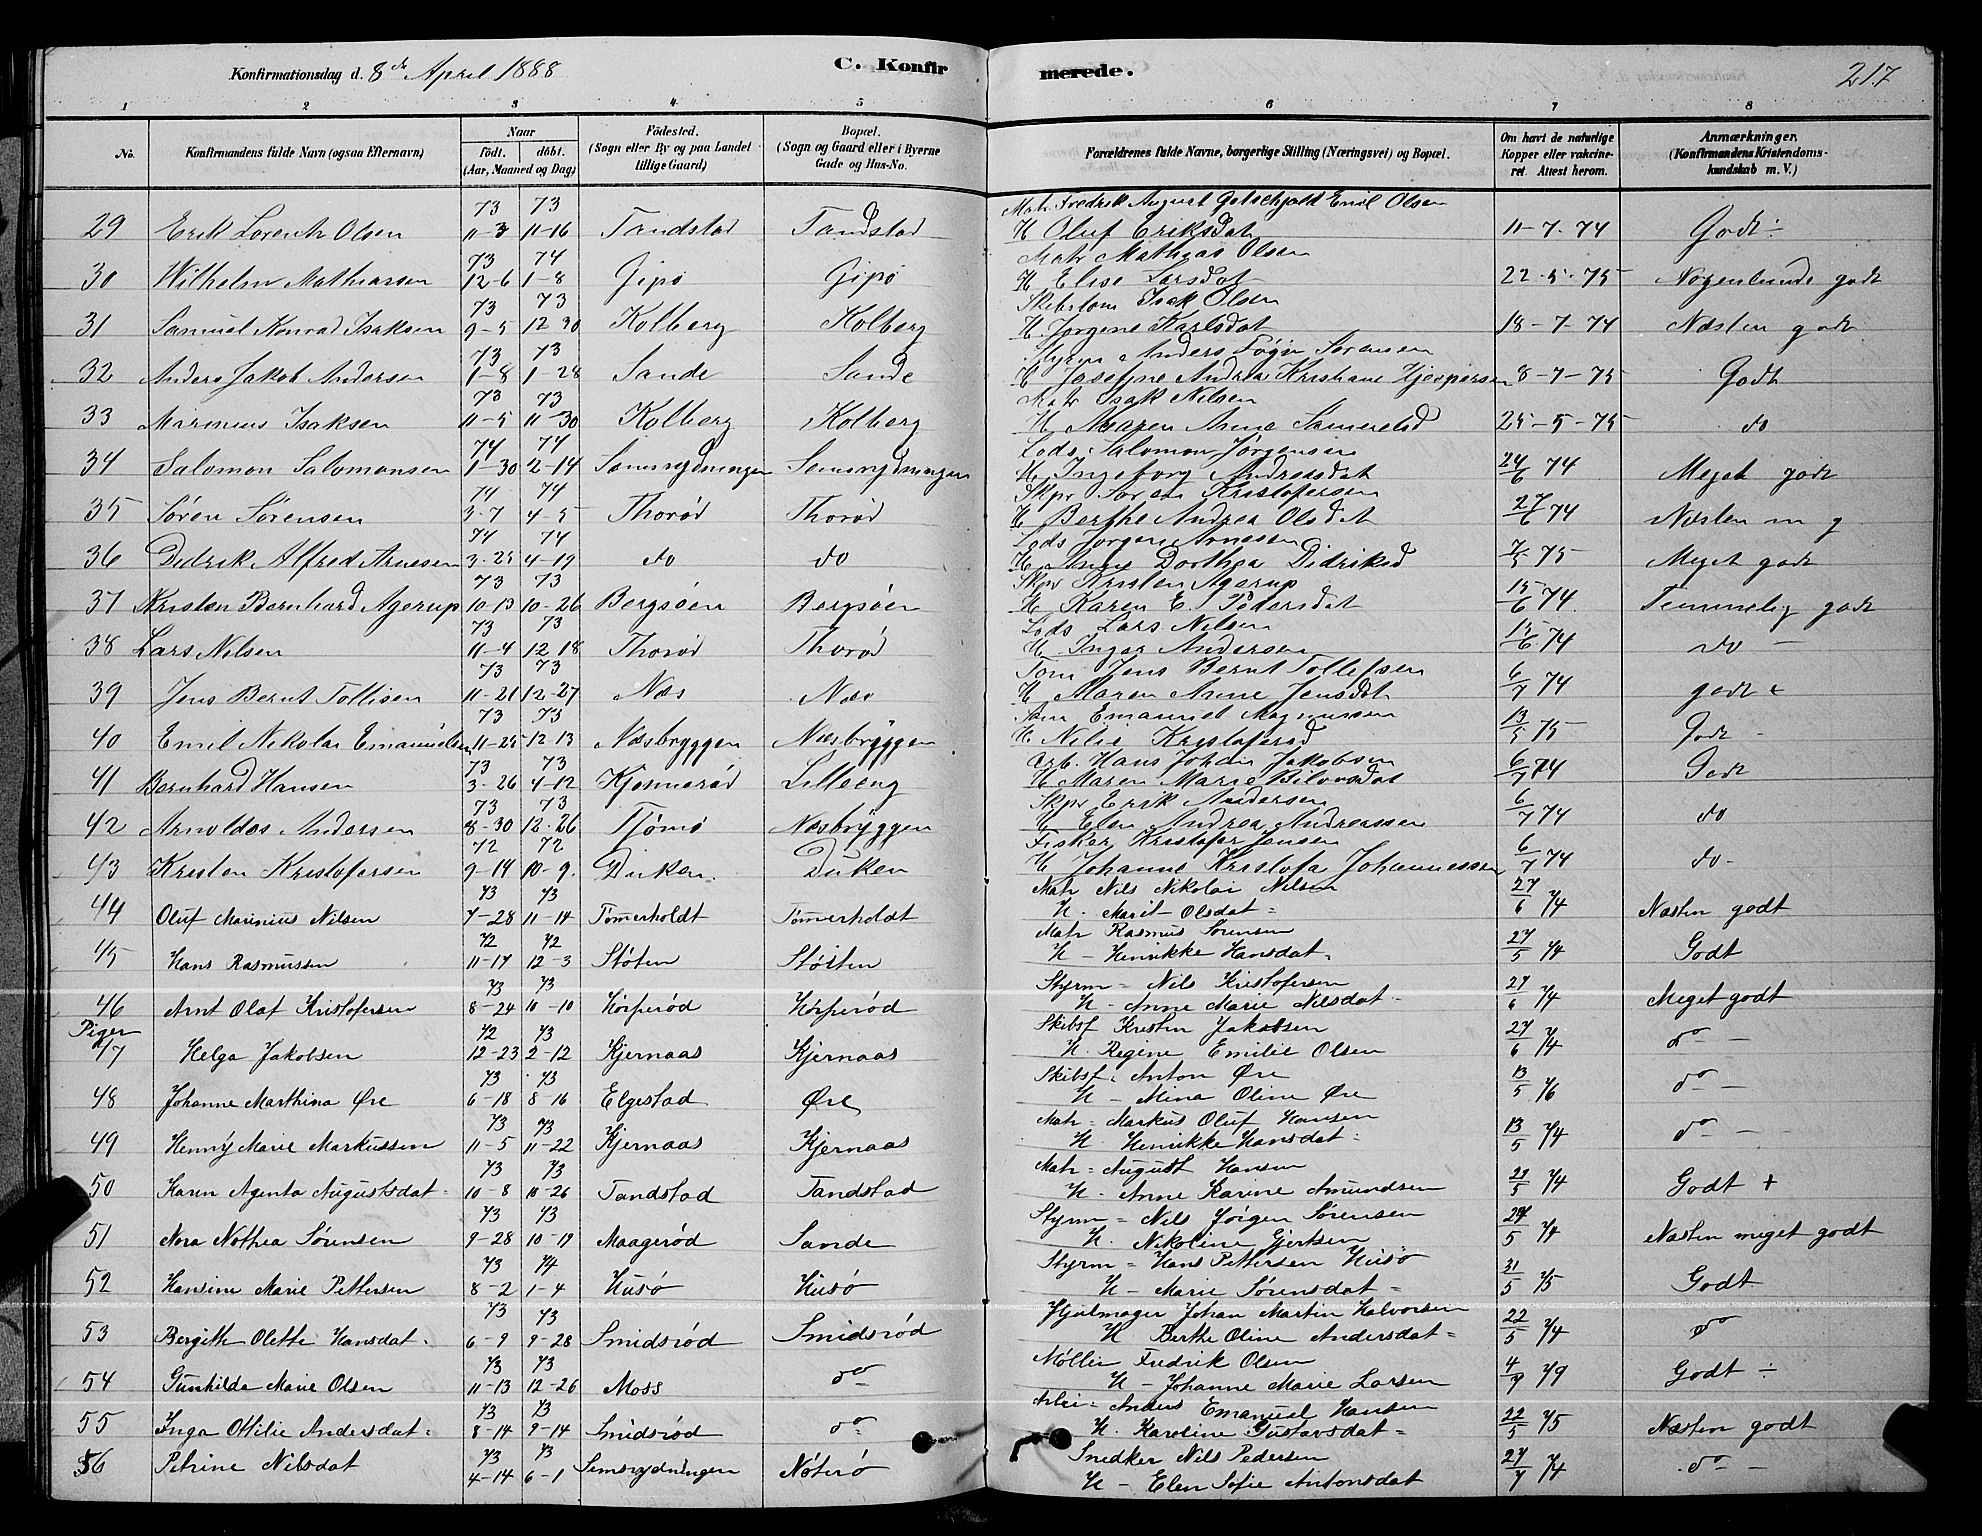 Konfirmationsdag d. 8de April 1888
C. Konfirmerede.
217
1 2 3 4 5 6 7 8
No. Konfirmandens fulde Navn (ogsaa Efternavn) Naar født. døbt. (Aar, Maaned og Dag) Fødested. (Sogn eller By og paa Landet tillige Gaard) Bopæl. (Sogn og Gaard eller i Byerne Gade og Hus-No. Forældrenes fulde Navne, borgerlige Stilling (Næringsvei) og Bopæl. Om havt de naturlige Kopper eller vakcineret. Attest herom. Anmærkninger. (Konfirmandens Kristendomskundskab m. V.)
73 73 Matr Fredrik August Emil Olsen
29 Erik Lorentz Olsen 11-3 11-16 Tandstad Tandstad H Oluf Eriksdat 11-7-74 Godt ÷
73 74 Matr Mathias Olsen
30 Wilhelm Mathiassen 12-6 1-8 Gipø Gipø H Elise Larsdat 22-5-75 Nogenlunde godt
73 73 Skibstøm Isak Olsen
31 Samuel Konrad Isaksen 9-5 12 30 Kolberg Kolberg H Jørgine Karlsdat 18-7-74 Næsten godt
73 73 Styrm Anders Føgn Sørensen
32 Anders Jakob Andersen 1-8 1-28 Sande Sande H Josefine Andrea Kristiane Hjespersen 8-7-75 Godt
73 73 Matr Isak Nilsen
33 Marinius Isaksen 11-5 11-30 Kolberg Kolberg H Maren Anne Samuelsd 25-5-75 do
74 74 Lods Salomon Jørgensen
34 Salomon Salomonsen 1-30 2-14 Semsrydningen Semsrydningen H Ingeborg Andreasdat 24/6 74 Meget godt
74 74 Skpr Søren Kristofersen
35 Søren Sørensen 3-7 4-5 Thorød Thorød H Berthe Andrea Olsdat 27/6 74 Næsten m g
74 74 Lods Jørgen Arnesen
36 Didrik Alfred Arnesen 3-25 4-19 do do H Anne Dorthea Didriksd 7/5 75 Meget godt
73 73 Skpr Kristen Agerup
37 Kristen Bernhard Agerup 10-13 10-26 Bergsøen Bergsøen H Karen E. Pedersdat 15/6 74 Temmelig godt
73 73 Lods Lars Nilsen
38 Lars Nilsen 11-4 12 18 Thorød Thorød H Inger Andersen 15/6 74 do -
73 73 Tøm Jens Bernt Tollefsen
39 Jens Bernt Tollisen 11-21 12-27 Næs Næs H Maren Anne Jensdat 6/7 74 godt +
73 73 Søm Emanuel Magnussen
40 Emil Nikolai Emanuelsen 11-25 12 13 Næsbryggen Næsbryggen H Nilie Kristofersd 13/5 75 Godt -
73 73 Arb. Hans Johan Jakobsen
41 Bernhard Hansen 3-26 4-12 Kjønnerød Lilleeng H Maren Marie 6/7 74 Godt
73 73 Skpr Erik Andersen
42 Arnoldas Andersen 8-30 12-26 Tjømø Næsbryggen H Elen Andrea Andreassen 6/7 74 do
72 72 Fisker Kristofer Jensen
43 Kristen Kristofersen 9-14 10-9. Duken Duken H Johanne Kristofa Johannessen 6/7 74 do-
73 73 Matr Nils Nikolai Nilsen
44 Oluf Marinius Nilsen 7-28 11-14 Tømerholdt Tømerholdt H. Marit Olsdat = 27/6 74 Næsten godt
72 72 Matr Rasmus Sørensen
45 Hans Rasmussen 11-17 12-3 Støten Støiten H - Henrikke Hansdat = 27/5 74 Godt
73 73 Styrm = Nils Kristofersen
46 Arnt Olaf Kristofersen 8-24 10-10 Hørperød Hørperød H - Anne Marie Nilsdat - 27/6 74 Meget godt
Piger 72 73 Skibsf Kristen Jakobsen
47 Helga Jakobsen 12-23 2-12 Kjernaas Kjernaas H. Regine Emilie Olsen 27/6 74 do -
73 73 Skibsf: Anton Øre
48 Johanne Marthina Øre 6-18 8-16 Elgestad Øre H - Mina Oline Øre 13/5 76 do -
73 73 Matr = Markus Oluf Hansen
49 Henny Marie Markussen 11-5 11-22 Kjernaas Kjernaas H. Henrikke Hansdat = 13/5 74 do -
73 73 Matr = August Hansen
50 Karen Agenta Augustsdat = 10-8 10-26 Tandstad Tandstad H. Anne Karine Amundsen 23/5 74 Godt +
73 73 Styrm = Nils Jørgen Sørensen
51 Nora Nothea Sørensen 9-28 10-19 Maagerød Sande H. Nikoline Gjertsen 27/5 74 Næsten meget godt
73 74 Styrm = Hans Pettersen Husø
52 Hansine Marie Pettersen 8-2 1-4 Husø Husø H - Marie Sørensdat = 31/5 75 Godt
73 73 Hjulmager Johan Martin Halvorsen
53 Bergith Olette Hansdat = 6-9 9-28 Smidsrød Smidsrød H Berthe Oline Andersdat = 22/5 74 do
73 73 Møller Fredrik Olsen
54 Gunhilda Marie Olsen 11-13 12-26 Moss do H - Johanne Marie Larsen 4/7 79 Godt ÷
73 73 Arbei = Anders Emanuel Hansen
55 Inga Ottilie Andersdat = 8-14 9-14 Smidsrød do H. Karoline Gustavsdat = 22/5 75 Næsten godt
73 73 Snedker Nils Pedersen
56 Petrine Nilsdat 4-14 6-1 Semsrydningen Nøterø H - Elen Sofie Antonsdat 27/7 74 do -